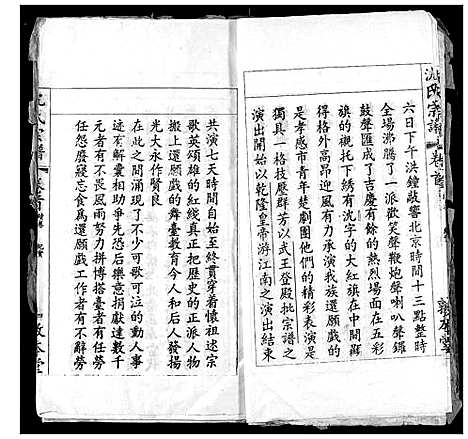 沈氏宗譜 卷首
六日下午洪鐘敲響北京時間十三點整時
全場沸騰了一派歡笑聲鞭炮聲喇叭聲鑼
鼓聲匯成了吉慶有餘的熱烈場面在五彩
旗的襯托下綉有沈字的大紅旗在中間顯
得格外高昂迎風有力承演我族還願戲的
是孝感市青年楚劇團他們的精彩表演是
獨具一格技壓群芳以武王登殿批宗譜之
演出開始以乾隆皇帝游江南之演出結束
共演七天時間自始至終貫穿着懷祖述宗
歌英頌雄的紅綫真正把歷史的正派人物
搬上還願戲的舞臺教育今人和后人發揚
光大永作賢良
在此之間涌現了不少可歌可泣的動人事
迹有解囊相助爭先恐后樂意捐獻達數千
元者有不畏風雨努力拼博搭臺者有任勞
任怨廢寢忘食為還願戲工作者有不辭勞
沈氏宗譜 卷首